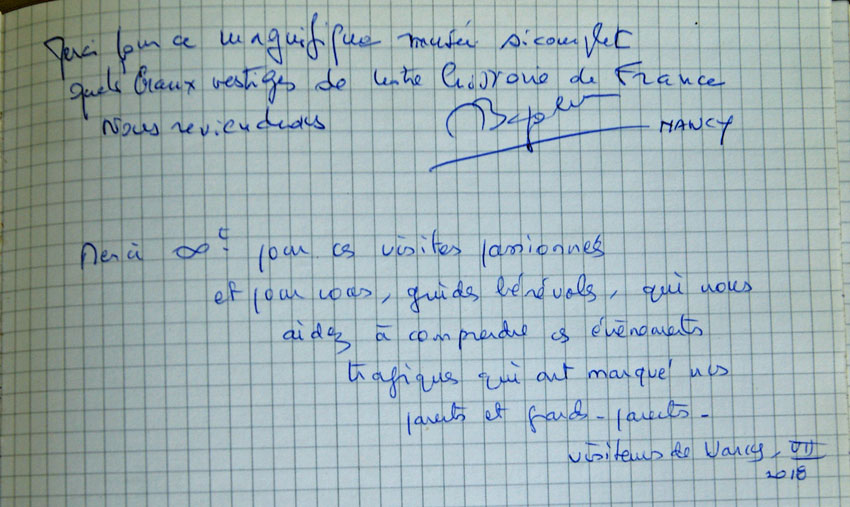 Merci pour ce magnifique musée si complet
quels beaux vestiges de notre histoire de France
Nous reviendrons
NANCY
Merci ∞t pour ces visites passionnés
et pour vous, guides bénévols, qui nous
aidez à comprendre ces évènements
tragiques qui ont marqué nos
parents et grands-parents-
visiteurs de Nancy, VII
2018